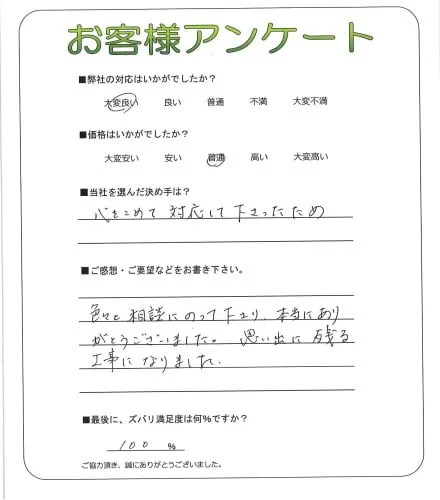 お客様アンケート
■弊社の対応はいかがでしたか?
大変良い 良い 普通 不満 大変不満
■価格はいかがでしたか?
大変安い 安い 普通 高い 大変高い
■当社を選んだ決め手は?
心をこめて対応して下さったため
■ご感想・ご要望などをお書き下さい。
色々と相談にのって下さり、本当にあり
がとうございました。思い出に残る
工事になりました.
■最後に、ズバリ満足度は何%ですか?
100 %
ご協力頂き、誠にありがとうございました。